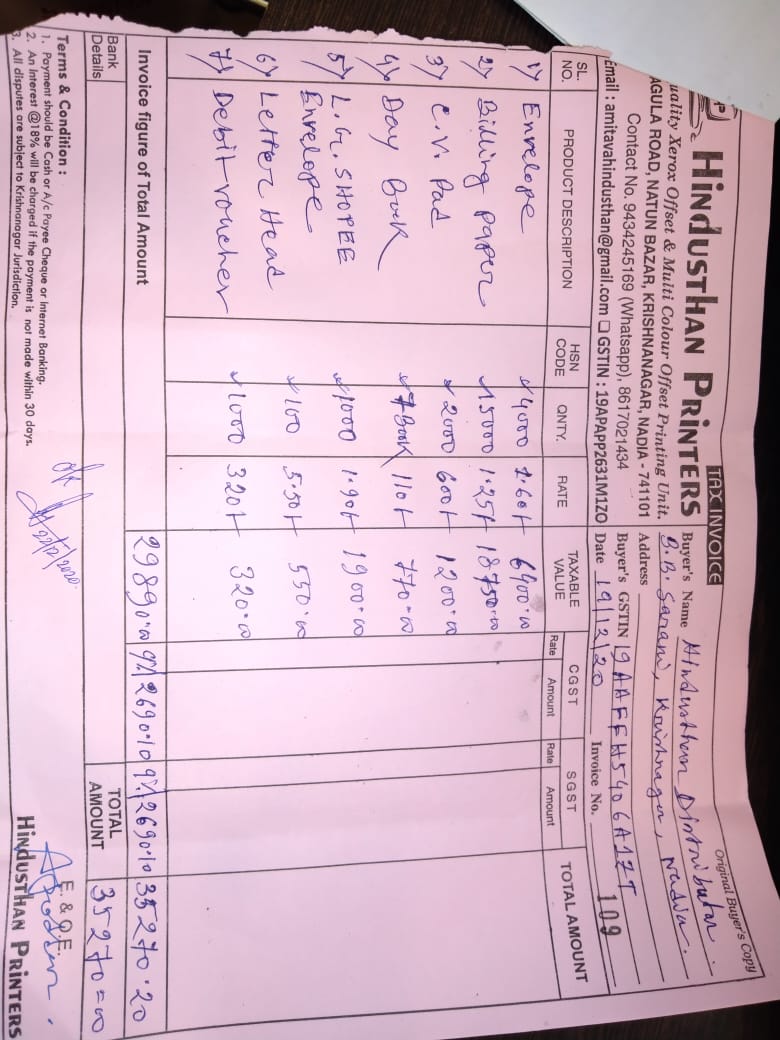 Original Buyer's Copy
TAX INVOICE
HINDUSTHAN PRINTERS
uality Xerox Offset & Multi Colour Offset Printing Unit.
AGULA ROAD, NATUN BAZAR, KRISHNANAGAR, NADIA - 741101
Contact No. 9434245169 (Whatsapp), 8617021434
Email : amitavahindusthan@gmail.com GSTIN : 19APAPP2631M1ZO
Buyer's Name Hindusthan Distributor.
D.B. Sarani, Krishnagar, Nadia.
Address
Buyer's GSTIN 19AAFFH5406A1ZT
Date 19/12/20 Invoice No. 109
SL. NO. PRODUCT DESCRIPTION HSN CODE QNTY. RATE TAXABLE VALUE CGST Rate Amount SGST Rate Amount TOTAL AMOUNT
1) Envelope 4000 1.60 6400.00
2) Billing paper 15000 1.25 18750.00
3) C.V. Pad 2000 600 1200.00
4) Day Book 7 Book 110 770.00
5) L.G. SHOPEE 1000 1.90 1900.00
Envelope
6) Letter Head 100 5.50 550.00
7) Debit voucher 1000 320 320.00
Invoice figure of Total Amount 29890.00 9% 2690.10 9% 2690.10 35270.20
Bank Details TOTAL AMOUNT 35270=00
Terms & Condition :
1. Payment should be Cash or A/c Payee Cheque or Internet Banking.
2. An Interest @18% will be charged if the payment is not made within 30 days.
3. All disputes are subject to Krishnanagar Jurisdiction.
E. & O.E.
HINDUSTHAN PRINTERS